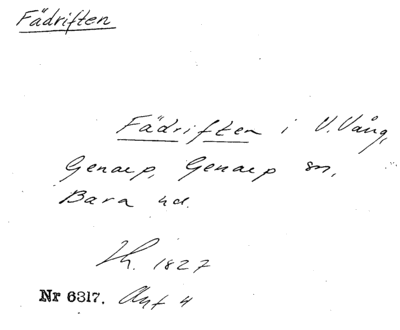 Fädriften
Fädriften i V. Vång,
Genarp, Genarp sn,
Bara hd.
Lh. 1827
Nr 6317. Akt 4